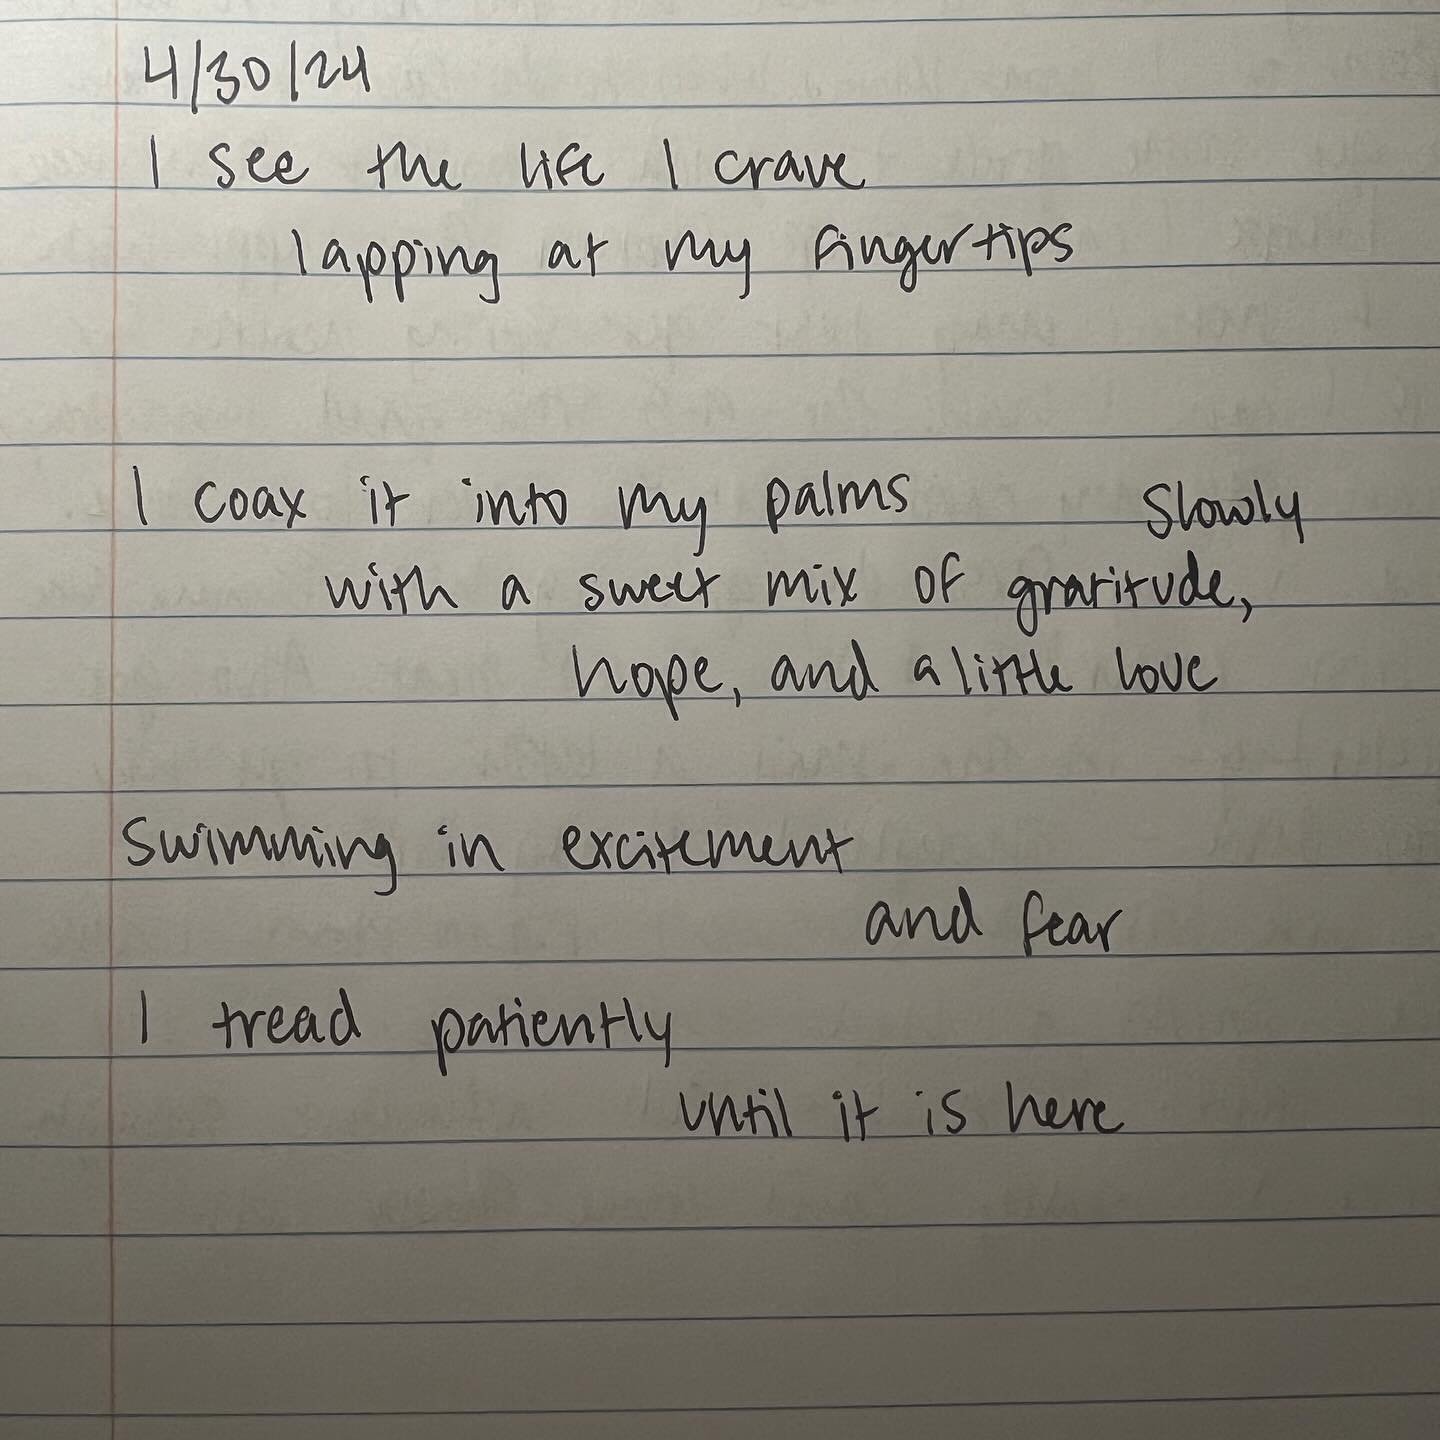 4/30/24
I see the life I crave
lapping at my fingertips
I coax it into my palms slowly
with a sweet mix of gratitude,
hope, and a little love
Swimming in excitement
and fear
I tread patiently
until it is here